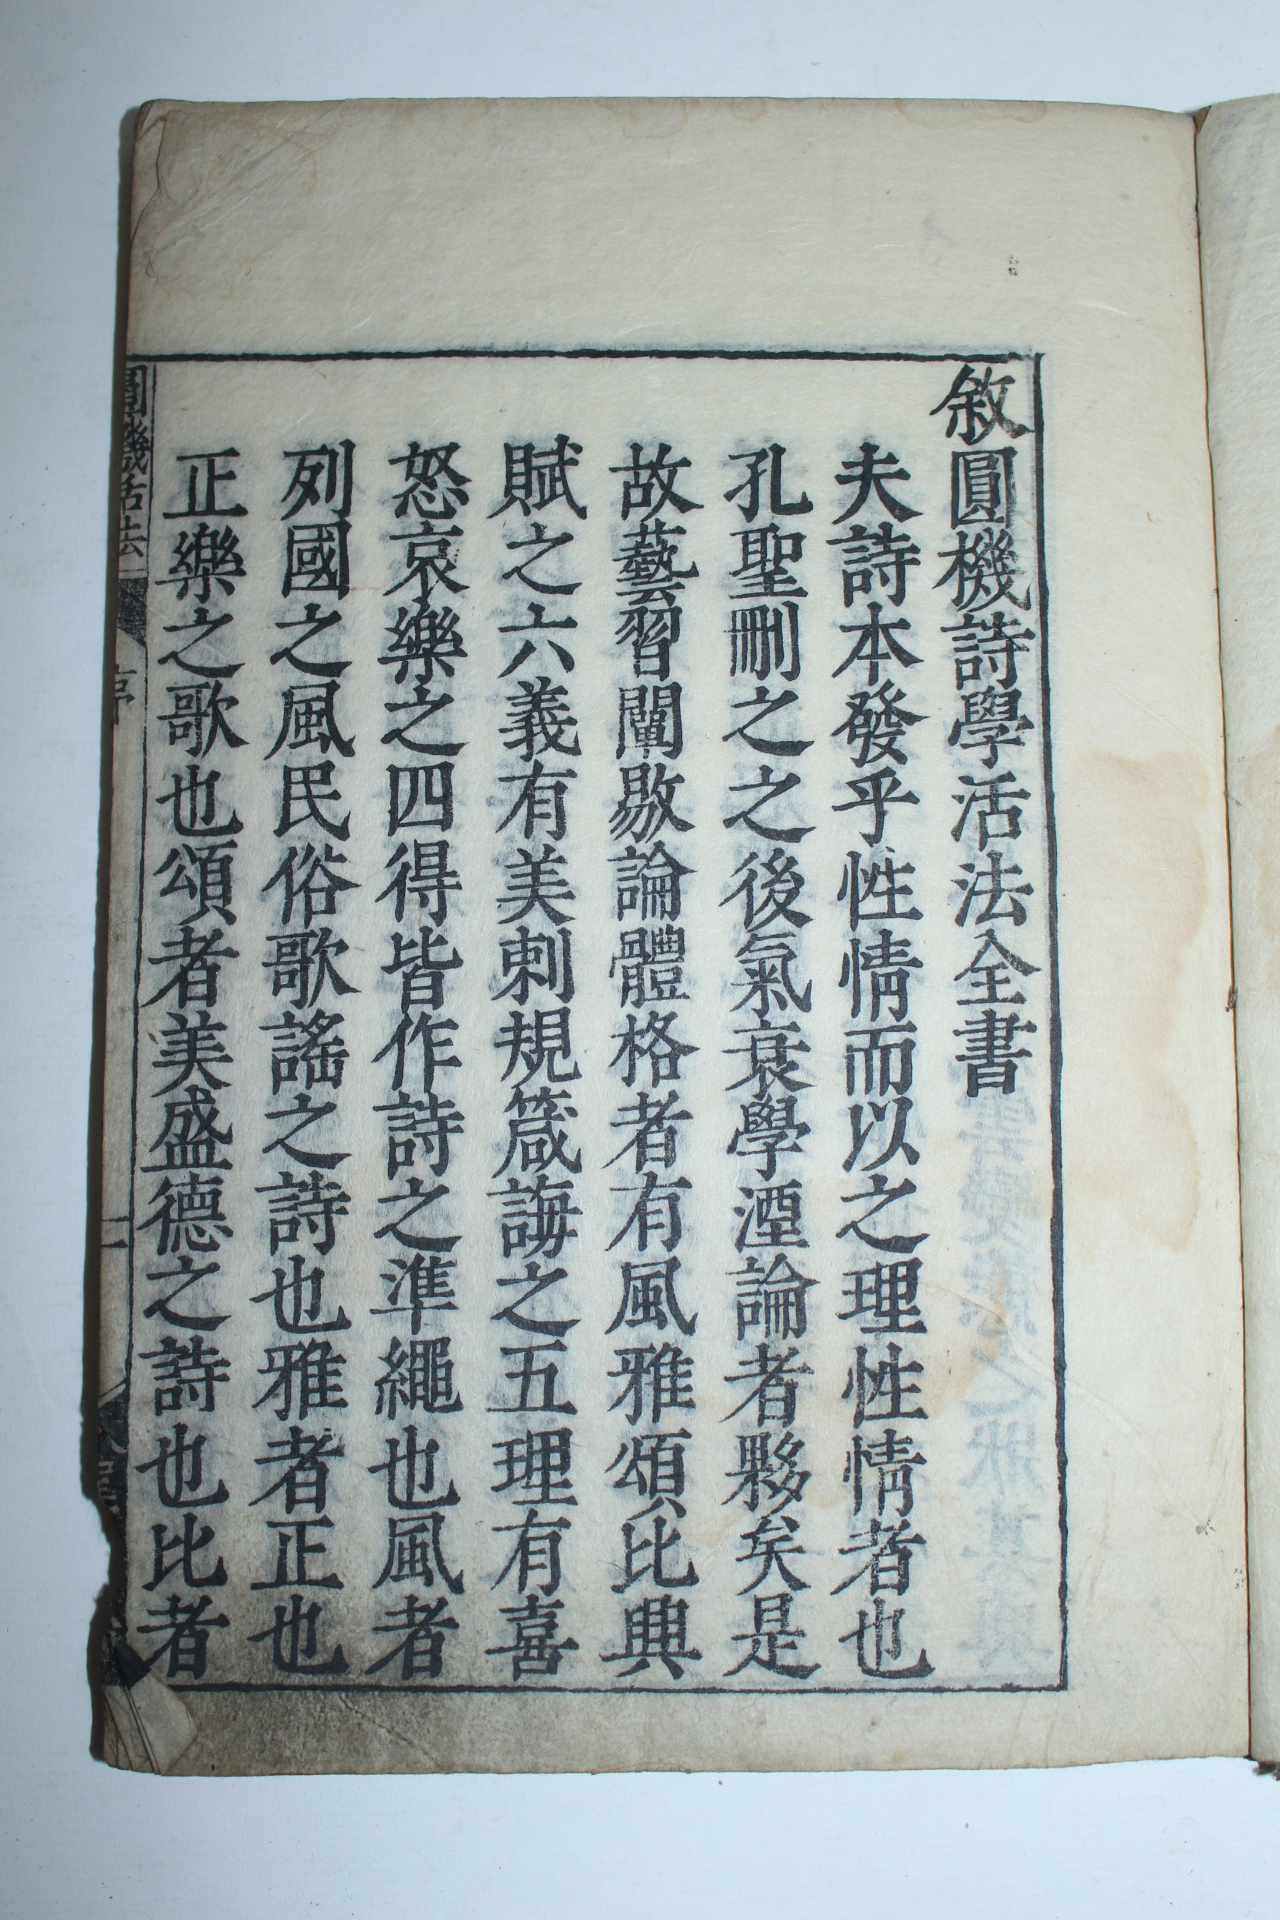 敘圓機詩學活法全書
夫詩本發乎性情而以之理性情者也
孔聖刪之之後氣衰學湮論者夥矣是
故藝習闡敭論體格者有風雅頌比興
賦之六義有美刺規箴誨之五理有喜
怒哀樂之四得皆作詩之準繩也風者
列國之風民俗歌謠之詩也雅者正也
正樂之歌也頌者美盛德之詩也比者
圓機活法
序
一